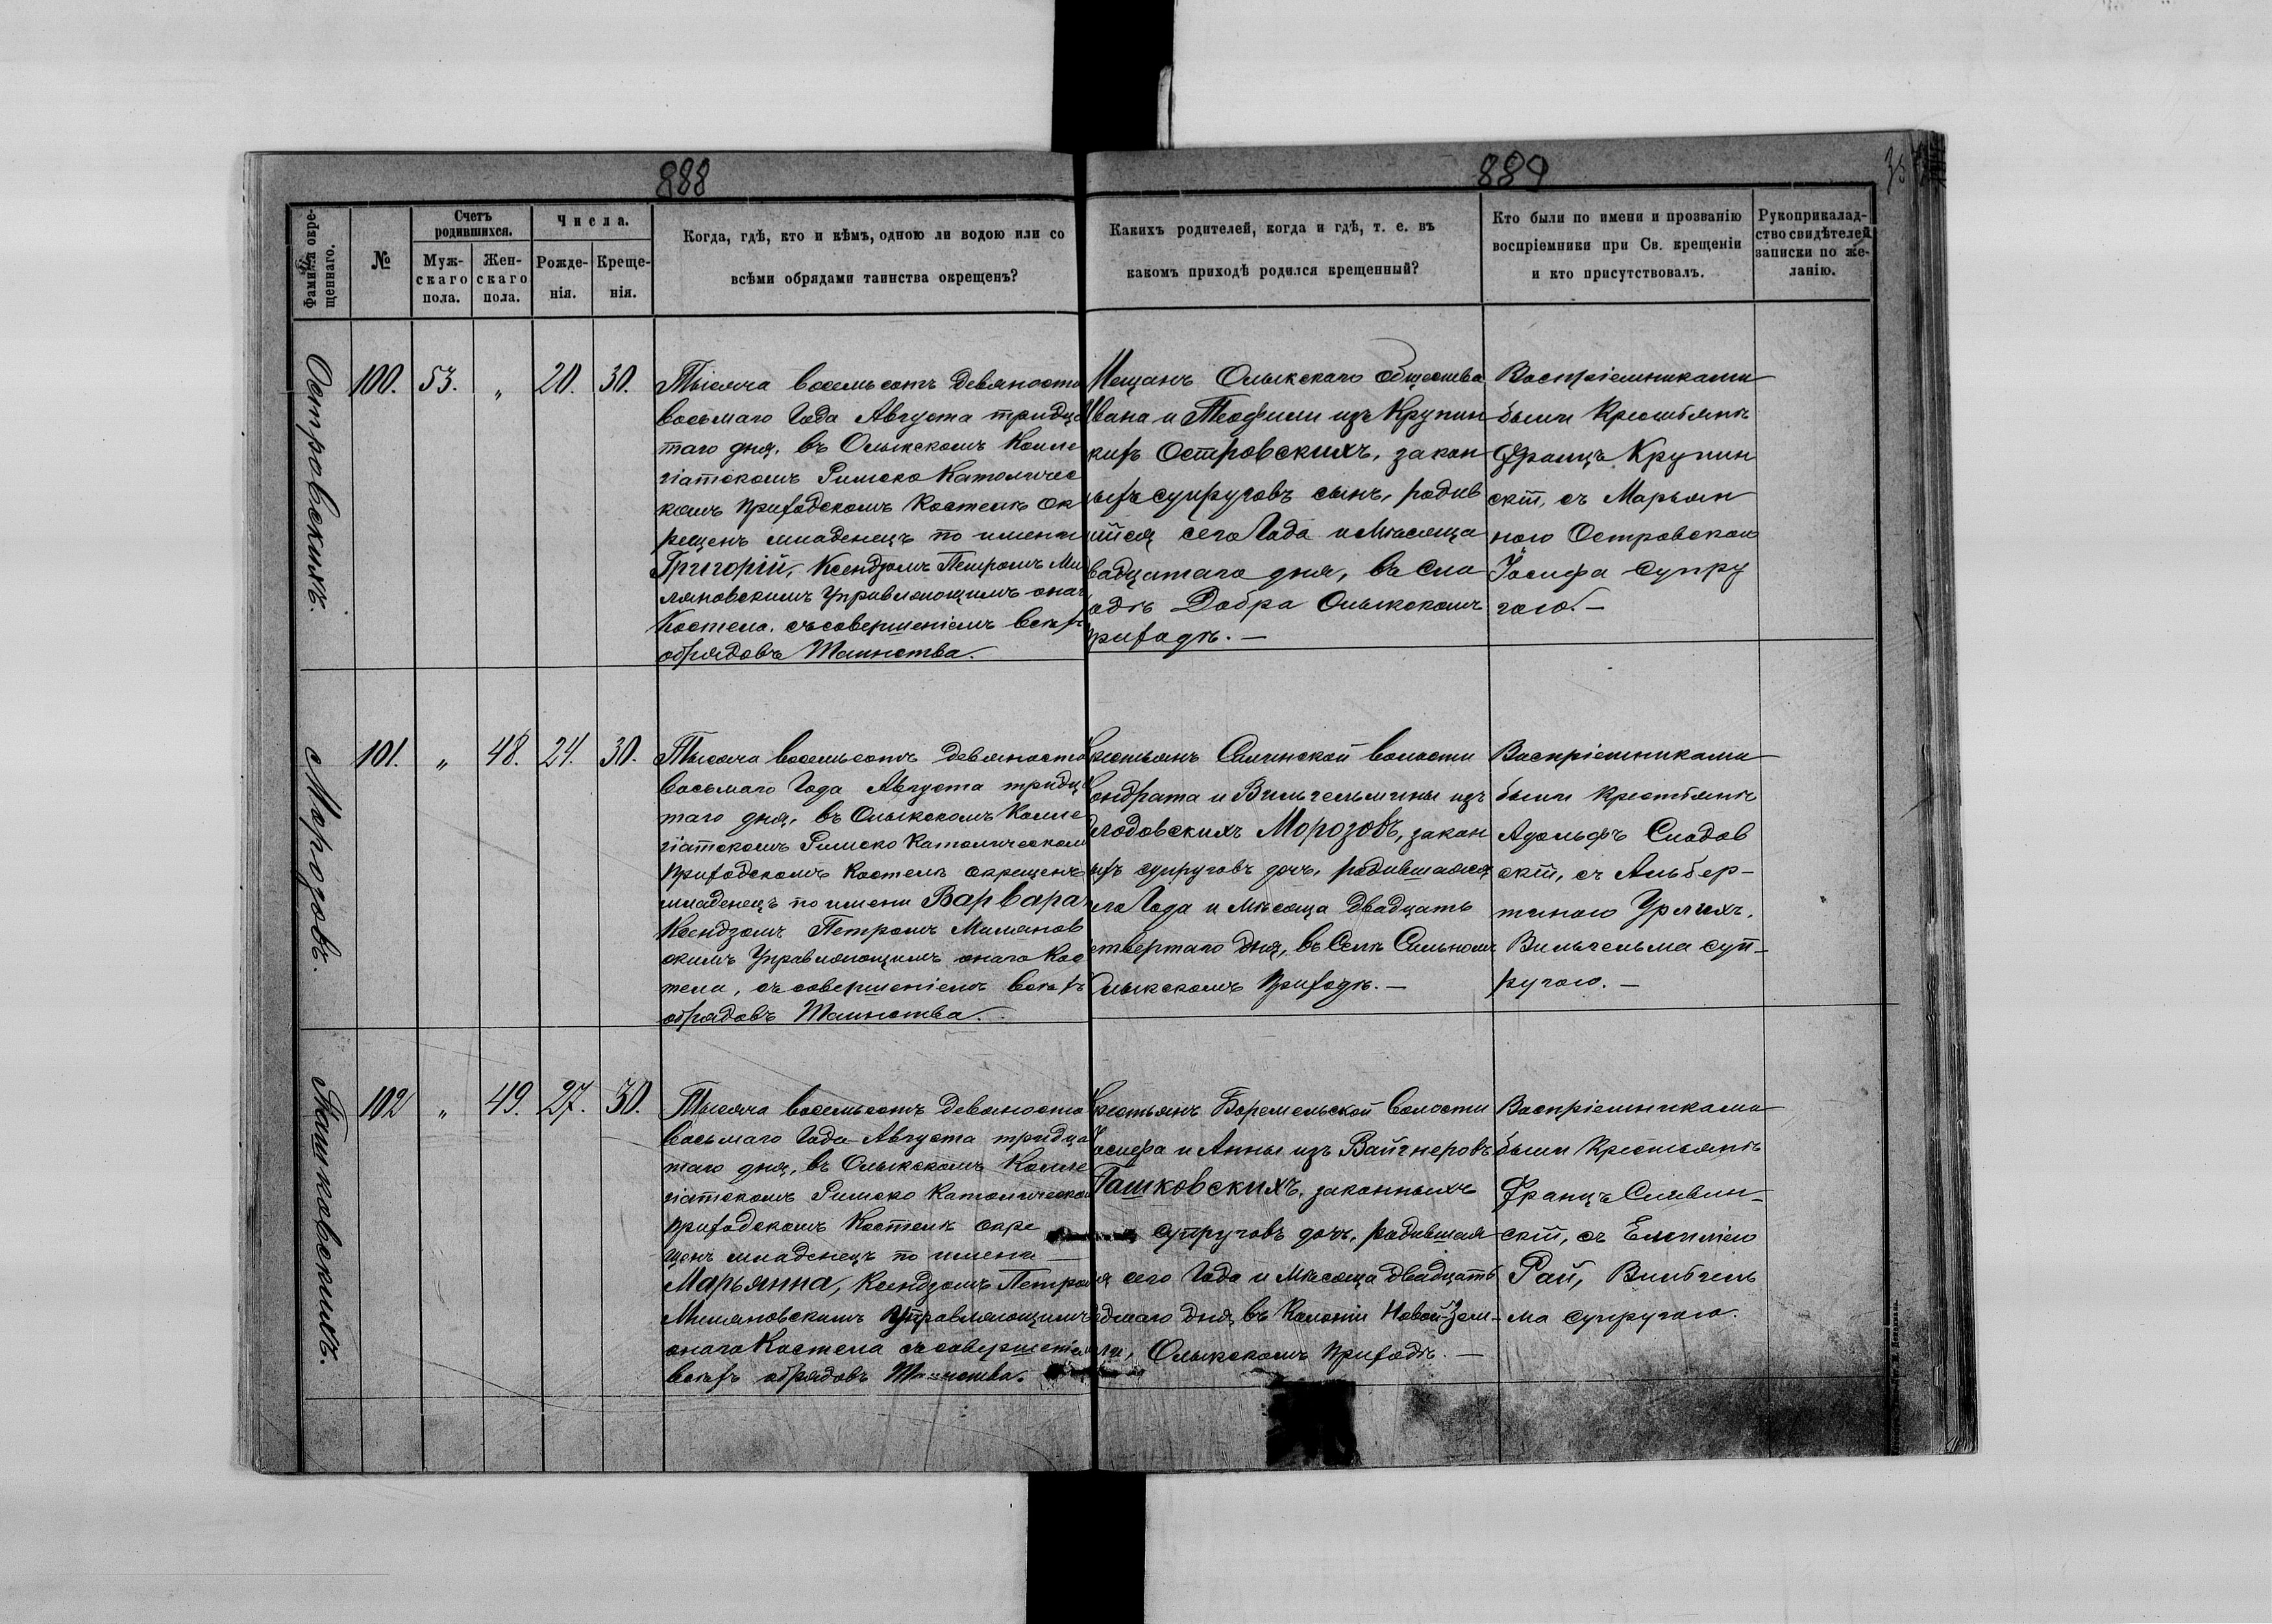 888
Фамилія окре-
щеннаго.
№
Счетъ
родившихся.
Муж-
скаго
пола.
Жен-
скаго
пола.
Числа.
Рожде-
нія.
Креще-
нія.
Когда, гдѣ, кто и кѣмъ, одною ли водою или со
всѣми обрядами таинства окрещенъ?
889
35
Какихъ родителей, когда и гдѣ, т. е. въ
какомъ приходѣ родился крещенный?
Кто были по имени и прозванію
воспріемники при Св. крещеніи
и кто присутствовалъ.
Рукоприкалад-
ство свидѣтелей
записки по же-
ланію.
Островскимъ.
100.
53.
„
20.
30.
Тысяча восемьсотъ девяносто
восьмаго Года Августа тридца
таго дня, въ Олыкскомъ Колле
гіатскомъ Римско Католичес
комъ приходскомъ Костелѣ ок
рещенъ младенецъ по имени
Григорій, Ксендзомъ Петромъ Ми
ляновскимъ Управляющимъ онаго
Костела, съ совершеніемъ всѣхъ
обрядовъ Таинства.
Мещанъ Олыкскаго общества
Ивана и Теофили изъ Крупин
кихъ Островскихъ, закон
ныхъ супруговъ сынъ, родив
шійся сего Года и Мѣсяца
вадцатаго дня, въ Сло
одѣ Добра Олыкскомъ
приходѣ. —
Воспріемниками
были Крестьянѣ
Францъ Крупин
скій, съ Марьян
ною Островскою
Іосифа супру
гою. —
Морозовъ.
101.
„
48.
24.
30.
Тысяча восемьсотъ девяносто
восьмаго Года Августа тридца
таго дня, въ Олыкскомъ Колле
гіатскомъ Римско Католическом
приходскомъ Костелѣ окрещенъ
младенецъ по имени Варвара
Ксендзомъ Петромъ Милянов
скимъ Управляющимъ онаго Кос
тела, съ совершеніемъ всѣхъ
обрядовъ Таинства.
Крестьянъ Силинской волости
Кондрата и Вильгельмины изъ
Слодовскихъ Морозовъ, закон
ныхъ супруговъ дочь, родившаяся
сего Года и Мѣсяца двадцать
етвертаго дня, въ Селѣ Сильномъ
Олыкскомъ приходѣ. —
Воспріемниками
были крестьянѣ
Адольфъ Слодов
скій, съ Альбер-
тиною Урлихъ,
Вильгельма суп-
ругою. —
Пашковскимъ.
102
„
49.
27.
30.
Тысяча восемьсотъ девяносто
восьмаго Года Августа тридца
таго дня, въ Олыкскомъ Колле
гіатскомъ Римско Католическом
приходскомъ Костелѣ окре
щенъ младенецъ по имени
Марьянна, Ксендзомъ Петром
Миляновскимъ Управляющимъ
онаго Костела съ совершеніем
всѣхъ обрядовъ Таинства.
Крестьянъ Боремельской Волости
Іосифа и Анны изъ Вайгнеровъ
Пашковскихъ, законныхъ
супруговъ дочь, родившая
ся сего Года и Мѣсяца двадцать
едмаго дня, въ Колоніи Новой-Зем-
ли, Олыкскомъ приходѣ. —
Воспріемниками
были Крестьянѣ
Францъ Сливин-
скій, съ Емиліею
Рай, Вильгель
ма супругою.